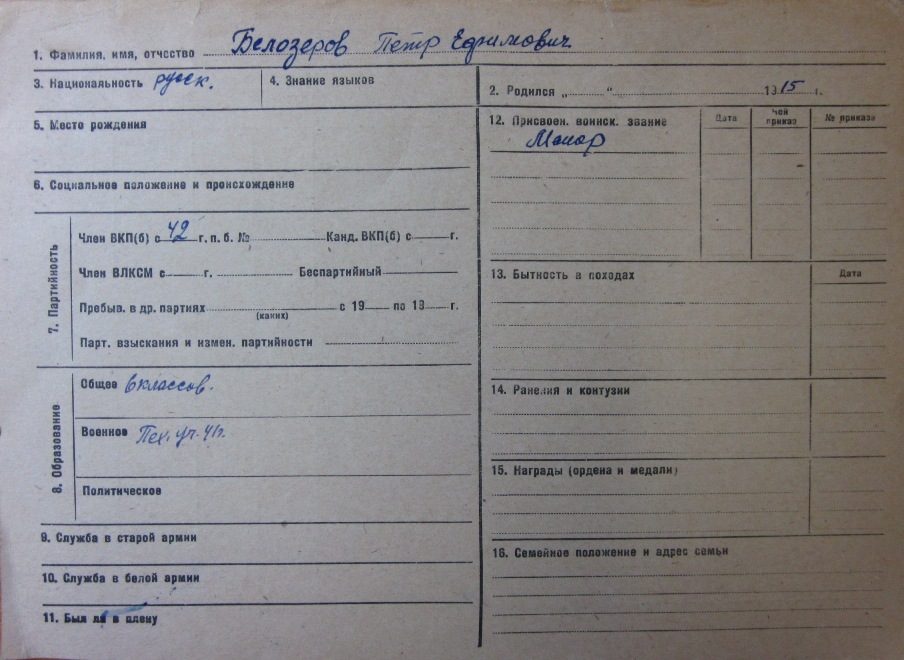 1. Фамилия, имя, отчество Белозеров Петр Ефимович
3. Национальность русск.
4. Знание языков
2. Родился „ “ 1915 г.
5. Место рождения
6. Социальное положение и происхождение
7. Партийность
Член ВКП(б) с 42 г. п. б. № Канд. ВКП(б) с г.
Член ВЛКСМ с г. Беспартийный
Пребыв. в др. партиях с 19 по 19 г.
(каких)
Парт. взыскания и измен. партийности
8. Образование
Общее 6 классов.
Военное Пех. уч. 41г.
Политическое
9. Служба в старой армии
10. Служба в белой армии
11. Был ли в плену
12. Присвоен. воинск. звание Дата Чей приказ № приказа
Майор
13. Бытность в походах Дата
14. Ранения и контузии
15. Награды (ордена и медали)
16. Семейное положение и адрес семьи